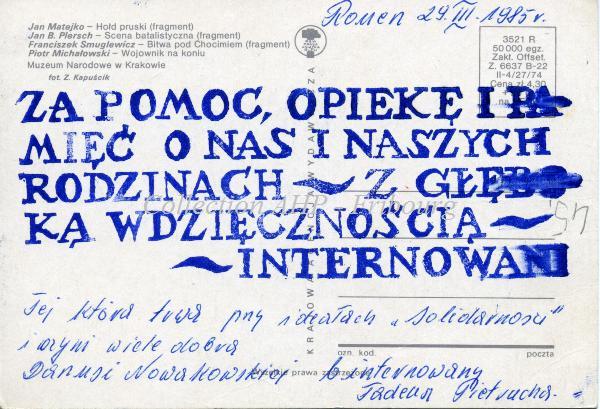 Romen 29.III.1985 r.
Jan Matejko – Hołd pruski (fragment)
Jan B. Plersch – Scena batalistyczna (fragment)
Franciszek Smuglewicz – Bitwa pod Chocimiem (fragment)
Piotr Michałowski – Wojownik na koniu
Muzeum Narodowe w Krakowie
fot. Z. Kapuścik
3521 R
50 000 egz.
Zakł. Offset.
Z. 6637 B-22
II-4/27/74
Cena zł 4,30
na
ZA POMOC, OPIEKĘ I PA
MIĘĆ O NAS I NASZYCH
RODZINACH ~ Z GŁĘBO
KĄ WDZIĘCZNOŚCIĄ ~
~ INTERNOWANI
Collection AHP - Fribourg
45,-
KRAKOWA WYDAW ZA
Tej która trwa przy ideałach „Solidarności"
i czyni wiele dobra
Danusi Nowakowskiej b. internowany
Tadeusz Pietrucha
Wszelkie prawa zastrzeżone
ozn. kod.
poczta